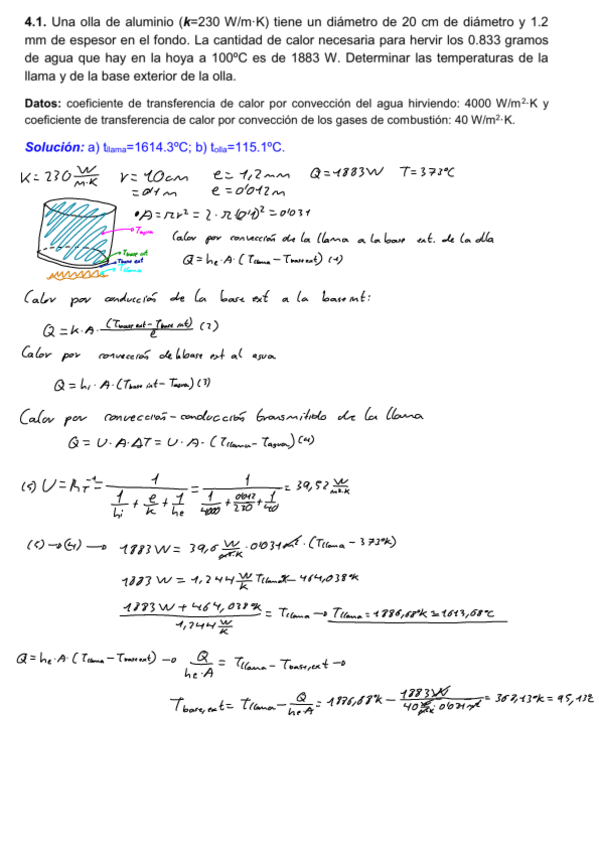 4.1. Una olla de aluminio (k=230 W/m·K) tiene un diámetro de 20 cm de diámetro y 1.2
mm de espesor en el fondo. La cantidad de calor necesaria para hervir los 0.833 gramos
de agua que hay en la hoya a 100ºC es de 1883 W. Determinar las temperaturas de la
llama y de la base exterior de la olla.
Datos: coeficiente de transferencia de calor por convección del agua hirviendo: 4000 W/m²·K y
coeficiente de transferencia de calor por convección de los gases de combustión: 40 W/m²·K.
Solución: a) tllama=1614.3ºC; b) tolla=115.1ºC.
K = 230 W/m·K r = 10cm e = 1,2mm Q = 1883W T = 373ºC
= 0'1m e = 0'012m
•A = πr² = 2·π(0'1)² = 0'031
Tagua
Calor por convección de la llama a la base ext. de la olla
Tbase int
Tbase ext
Tllama
Q = he·A·(Tllama - Tbase ext) (1)
Calor por conducción de la base ext a la base int:
Q = k·A·(Tbase ext - Tbase int)/e (2)
Calor por convección de la base ext al agua
Q = hi·A·(Tbase int - Tagua) (3)
Calor por convección-conducción transmitido de la llama
Q = U·A·ΔT = U·A·(Tllama - Tagua) (4)
(5) U = RT⁻¹ = 1/(1/hi + e/k + 1/he) = 1/(1/4000 + 0'012/230 + 1/40) = 39,52 W/m²·K
(5)→(4) → 1883W = 39,6 W/m²·K · 0'031m² · (Tllama - 373ºK)
1883 W = 1,244 W/K Tllama - 464,038ºK
(1883W + 464,038ºK)/(1,244 W/K) = Tllama → Tllama = 1886,68ºK = 1613,68ºC
Q = he·A·(Tllama - Tbase ext) → Q/(he·A) = Tllama - Tbase,ext →
Tbase,ext = Tllama - Q/(he·A) = 1886,68ºK - 1883W/(40 W/m²K · 0'031m²) = 368,13ºK = 95,13ºC